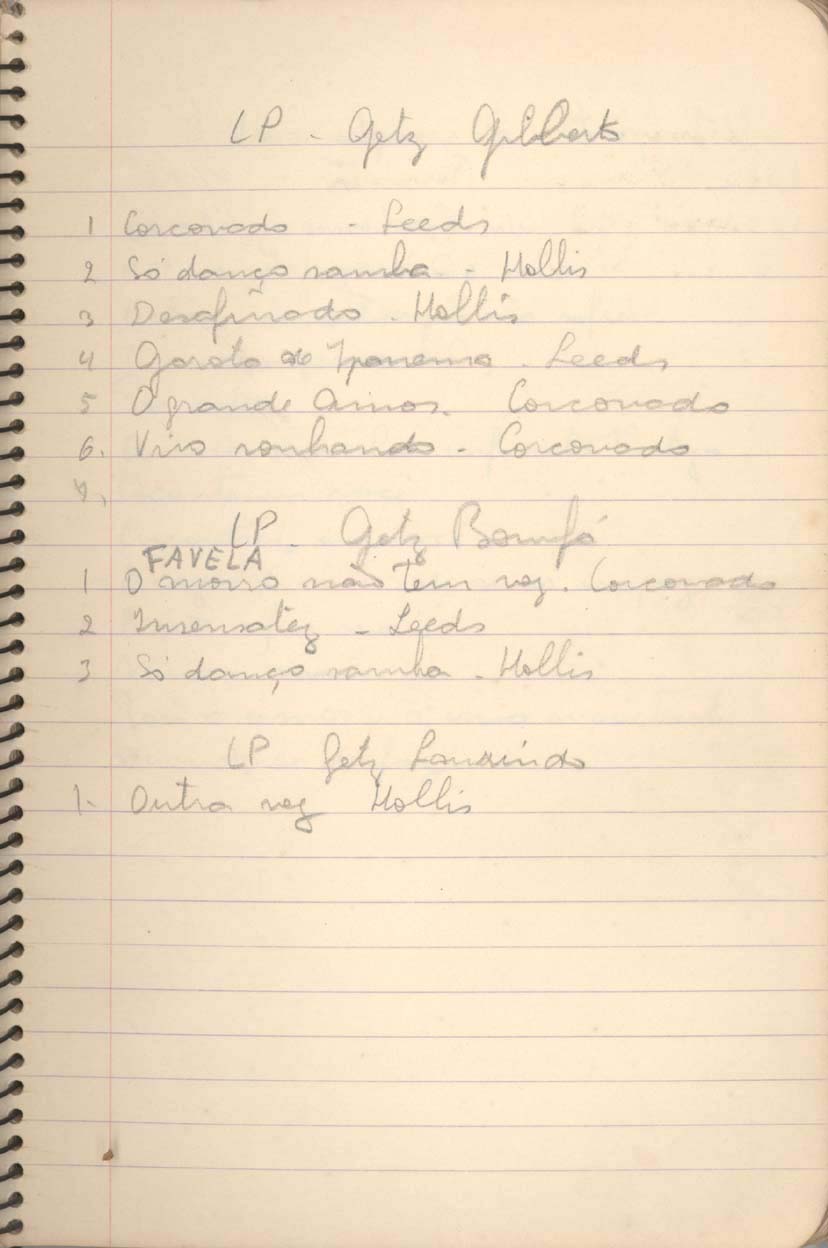 LP - Getz Gilberto
1 Corcovado - Leeds
2 Só danço samba - Hollis
3 Desafinado - Hollis
4 Garota de Ipanema - Leeds
5 O grande Amor - Corcovado
6. Vivo sonhando - Corcovado
7.
LP - Getz Bonfá
FAVELA
1 O morro não tem vez. Corcovado
2 Insensatez - Leeds
3 Só danço samba - Hollis
LP Getz Laurindo
1. Outra vez Hollis